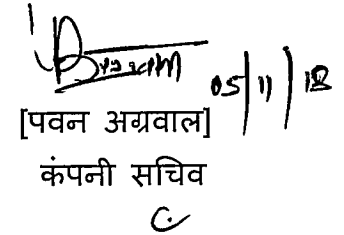 05/11/18
[पवन अग्रवाल]
कंपनी सचिव